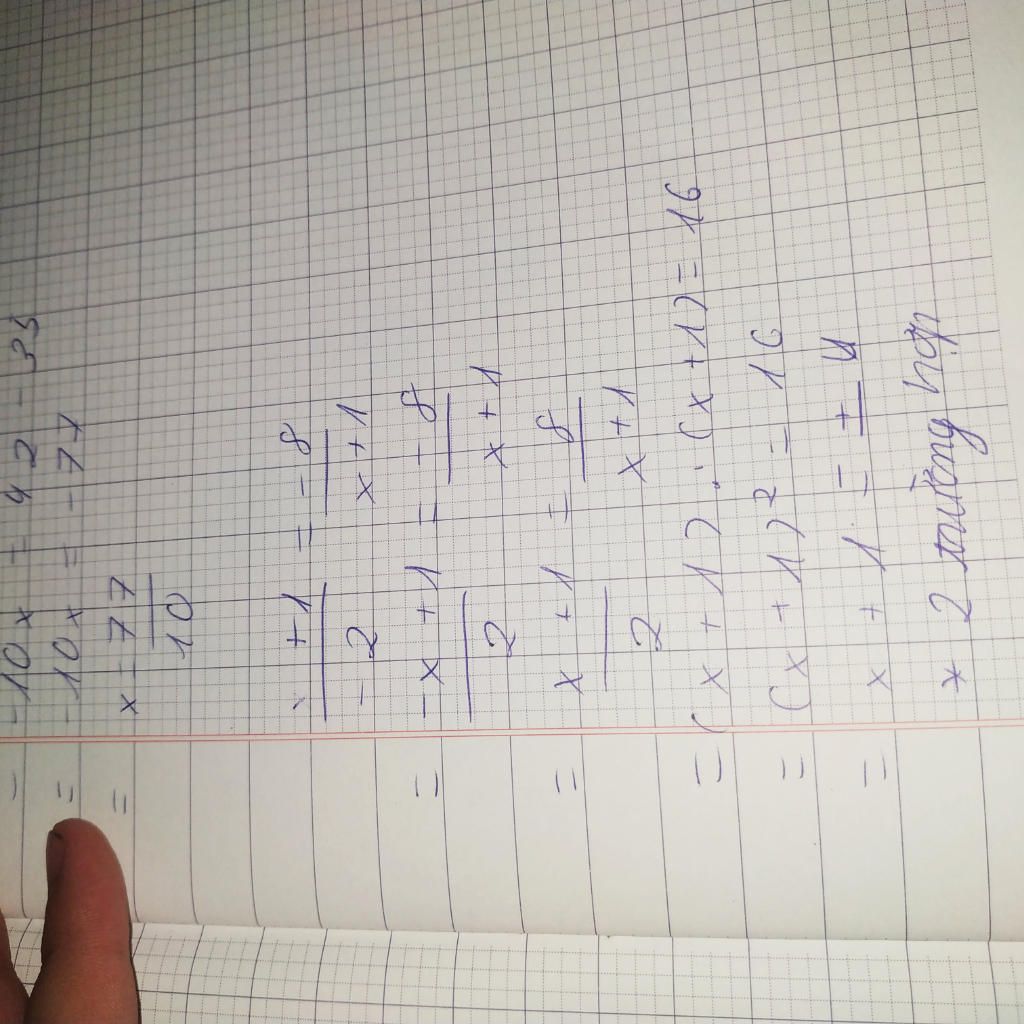 -10x = 42 - 35
= -10x = -77
= x = 77/10
x+1/-2 = -8/x+1
= -x+1/2 = -8/x+1
= x+1/2 = 8/x+1
= (x+1).(x+1) = 16
= (x+1)² = 16
= x+1 = ±4
* 2 trường hợp